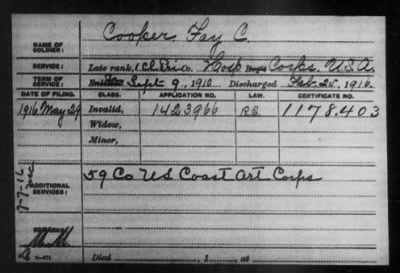 Cooper Fay C.
NAME OF SOLDIER:
SERVICE: Late rank, 1 Cl Pri Co. Hosp Reg't Corps. U.S.A.
TERM OF SERVICE: Enlisted Sept 9, 1910 Discharged Feb. 25, 1916.
DATE OF FILING. CLASS. APPLICATION NO. LAW. CERTIFICATE NO.
1916 May 29 Invalid, 1423966 1178.403
Widow,
Minor,
ADDITIONAL SERVICES: 59 Co U.S. Coast Art Corps
7-7-16
REMARKS:
Died , 1 , at